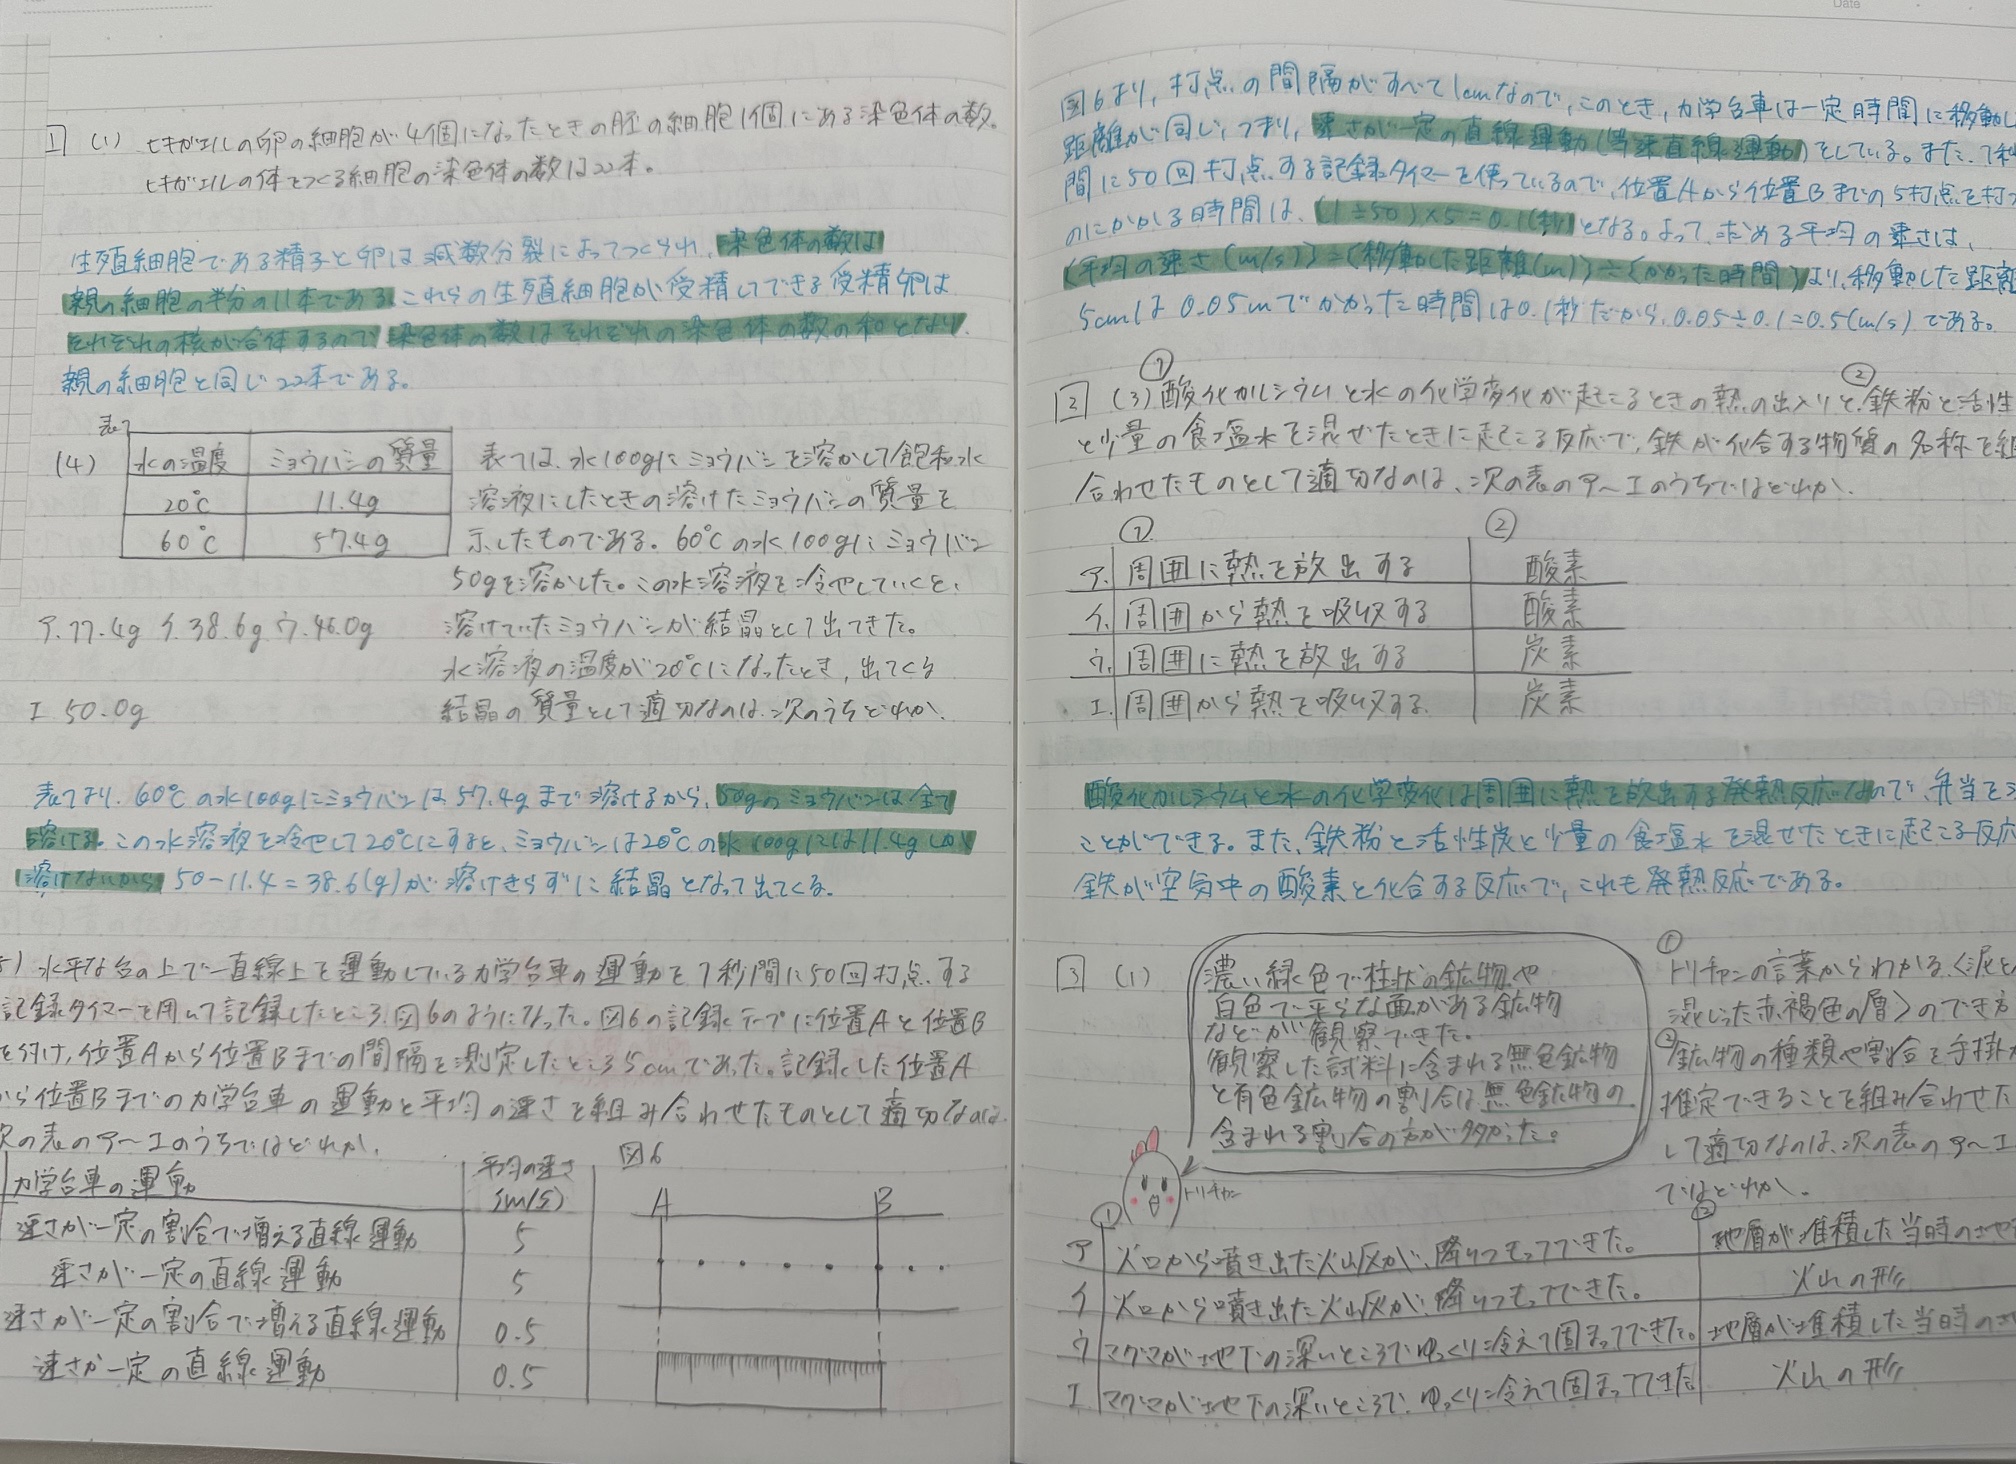 1 (1) ヒキガエルの卵の細胞が4個になったときの胚の細胞1個にある染色体の数。
ヒキガエルの体をつくる細胞の染色体の数は22本。
生殖細胞である精子と卵は減数分裂によってつくられ、染色体の数は
親の細胞の半分の11本である。これらの生殖細胞が受精してできる受精卵は
それぞれの核が合体するので染色体の数はそれぞれの染色体の数の和となり、
親の細胞と同じ22本である。
(4)
表1
水の温度 ミョウバンの質量
20℃ 11.4g
60℃ 57.4g
表1は、水100gにミョウバンを溶かして飽和水
溶液にしたときの溶けたミョウバンの質量を
示したものである。60℃の水100gにミョウバン
50gを溶かした。この水溶液を冷やしていくと、
溶けていたミョウバンが結晶として出てきた。
水溶液の温度が20℃になったとき、出てくる
結晶の質量として適切なのは、次のうちどれか。
ア.11.4g イ.38.6g ウ.46.0g
エ 50.0g
表1より、60℃の水100gにミョウバンは57.4gまで溶けるから、50gのミョウバンは全て
溶ける。この水溶液を冷やして20℃にすると、ミョウバンは20℃の水100gには11.4gしか
溶けないから 50-11.4=38.6(g)が溶けきらずに結晶となって出てくる。
5) 水平な台の上で一直線上を運動している力学台車の運動を1秒間に50回打点する
記録タイマーを用いて記録したところ、図6のようになった。図6の記録テープに位置Aと位置B
を付け、位置Aから位置Bまでの間隔を測定したところ5cmであった。記録した位置A
から位置Bまでの力学台車の運動と平均の速さを組み合わせたものとして適切なのは、
次の表のア〜エのうちではどれか。
力学台車の運動 平均の速さ(m/s)
速さが一定の割合で増える直線運動 5
速さが一定の直線運動 5
速さが一定の割合で増える直線運動 0.5
速さが一定の直線運動 0.5
図6
A B
Date
図6より、打点の間隔がすべて1cmなので、このとき、力学台車は一定時間に移動し
距離が同じ、つまり、速さが一定の直線運動(等速直線運動)をしている。また、1秒
間に50回打点する記録タイマーを使っているので、位置Aから位置Bまでの5打点を打つ
のにかかる時間は、(1÷50)×5=0.1(秒)となる。よって、求める平均の速さは、
(平均の速さ(m/s))=(移動した距離(m))÷(かかった時間)より、移動した距離
5cmは0.05mでかかった時間は0.1秒だから、0.05÷0.1=0.5(m/s)である。
2 (3) ①酸化カルシウムと水の化学変化が起こるときの熱の出入りと、②鉄粉と活性
と少量の食塩水を混ぜたときに起こる反応で、鉄が化合する物質の名称を組
合わせたものとして適切なのは、次の表のア〜エのうちではどれか。
① ②
ア. 周囲に熱を放出する 酸素
イ. 周囲から熱を吸収する 酸素
ウ. 周囲に熱を放出する 炭素
エ. 周囲から熱を吸収する. 炭素
酸化カルシウムと水の化学変化は周囲に熱を放出する発熱反応なので、弁当を
ことができる。また、鉄粉と活性炭と少量の食塩水を混ぜたときに起こる反応
鉄が空気中の酸素と化合する反応で、これも発熱反応である。
3 (1)
濃い緑色で柱状の鉱物や
白色で平らな面がある鉱物
などが観察できた。
観察した試料に含まれる無色鉱物
と有色鉱物の割合は無色鉱物の
含まれる割合の方が多かった。
トリチャン
①
トリチャンの言葉からわかる、〈泥と
混じった赤褐色の層〉のでき方
②鉱物の種類や割合を手掛か
推定できることを組み合わせた
して適切なのは、次の表のア〜エ
ではどれか。
① ②
ア 火口から噴き出た火山灰が、降りつもってできた。 地層が堆積した当時の
イ 火口から噴き出た火山灰が、降りつもってできた。 火山の形
ウ マグマが地下の深いところでゆっくり冷えて固まってできた。 地層が堆積した当時の
エ マグマが地下の深いところで、ゆっくり冷えて固まってできた 火山の形